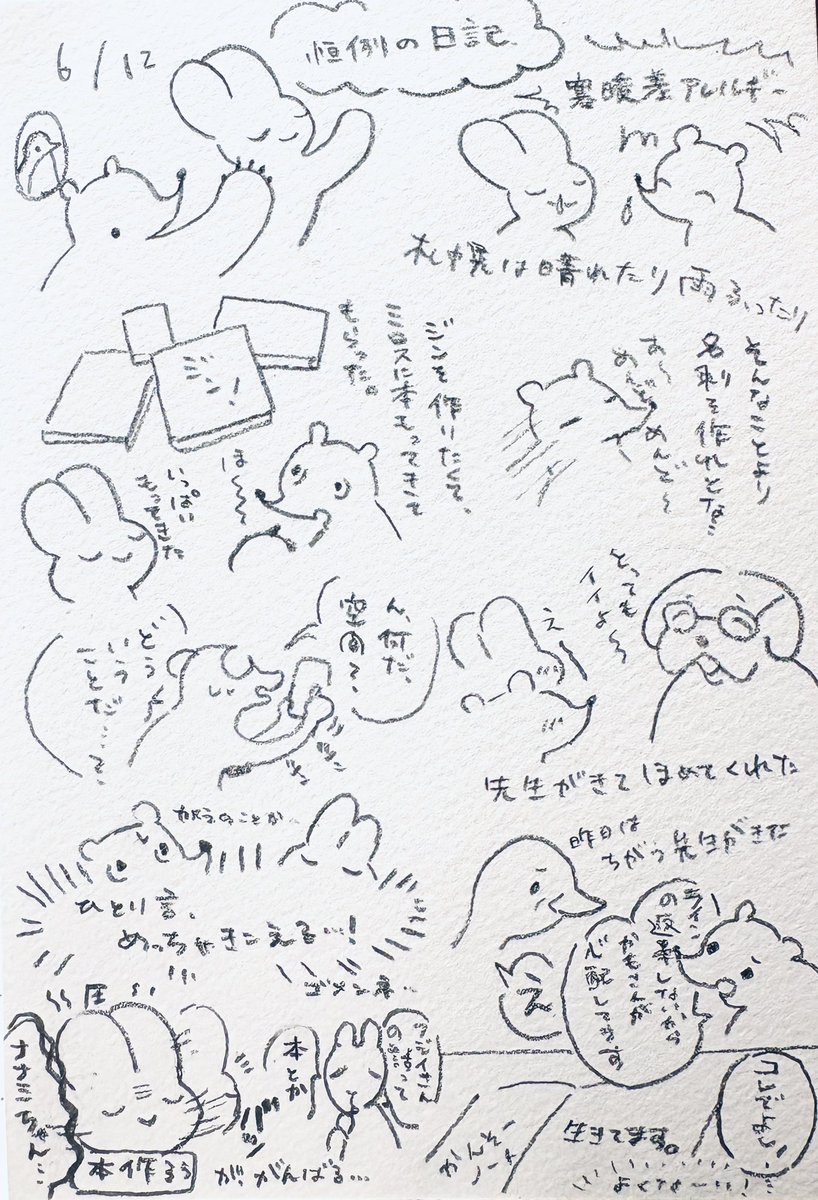 6/12
恒例の日記
寒暖差アレルギー
札幌は晴れたり雨ふったり
そんなことより
名刺を作れとな…
あ〜
めんど〜めんど〜
ジンを作りたくて、
ミロスに本もってきて
もらった。
ジン!
ほ〜
いっぱい
もってきた
とっても
イイよ〜
え
先生がきてほめてくれた
ん、何だ、
空間て、
どう
いう
ことだ…て
ひとり言、
めっちゃきこえる…!
ゴメン
昨日は
ちがう先生がきた
ライン
の返事しないから
かもさんが
心配してます
え
圧
ナナミちゃん
本作ろう
本とか
が、がんばる…
かんそー
よくな〜い!